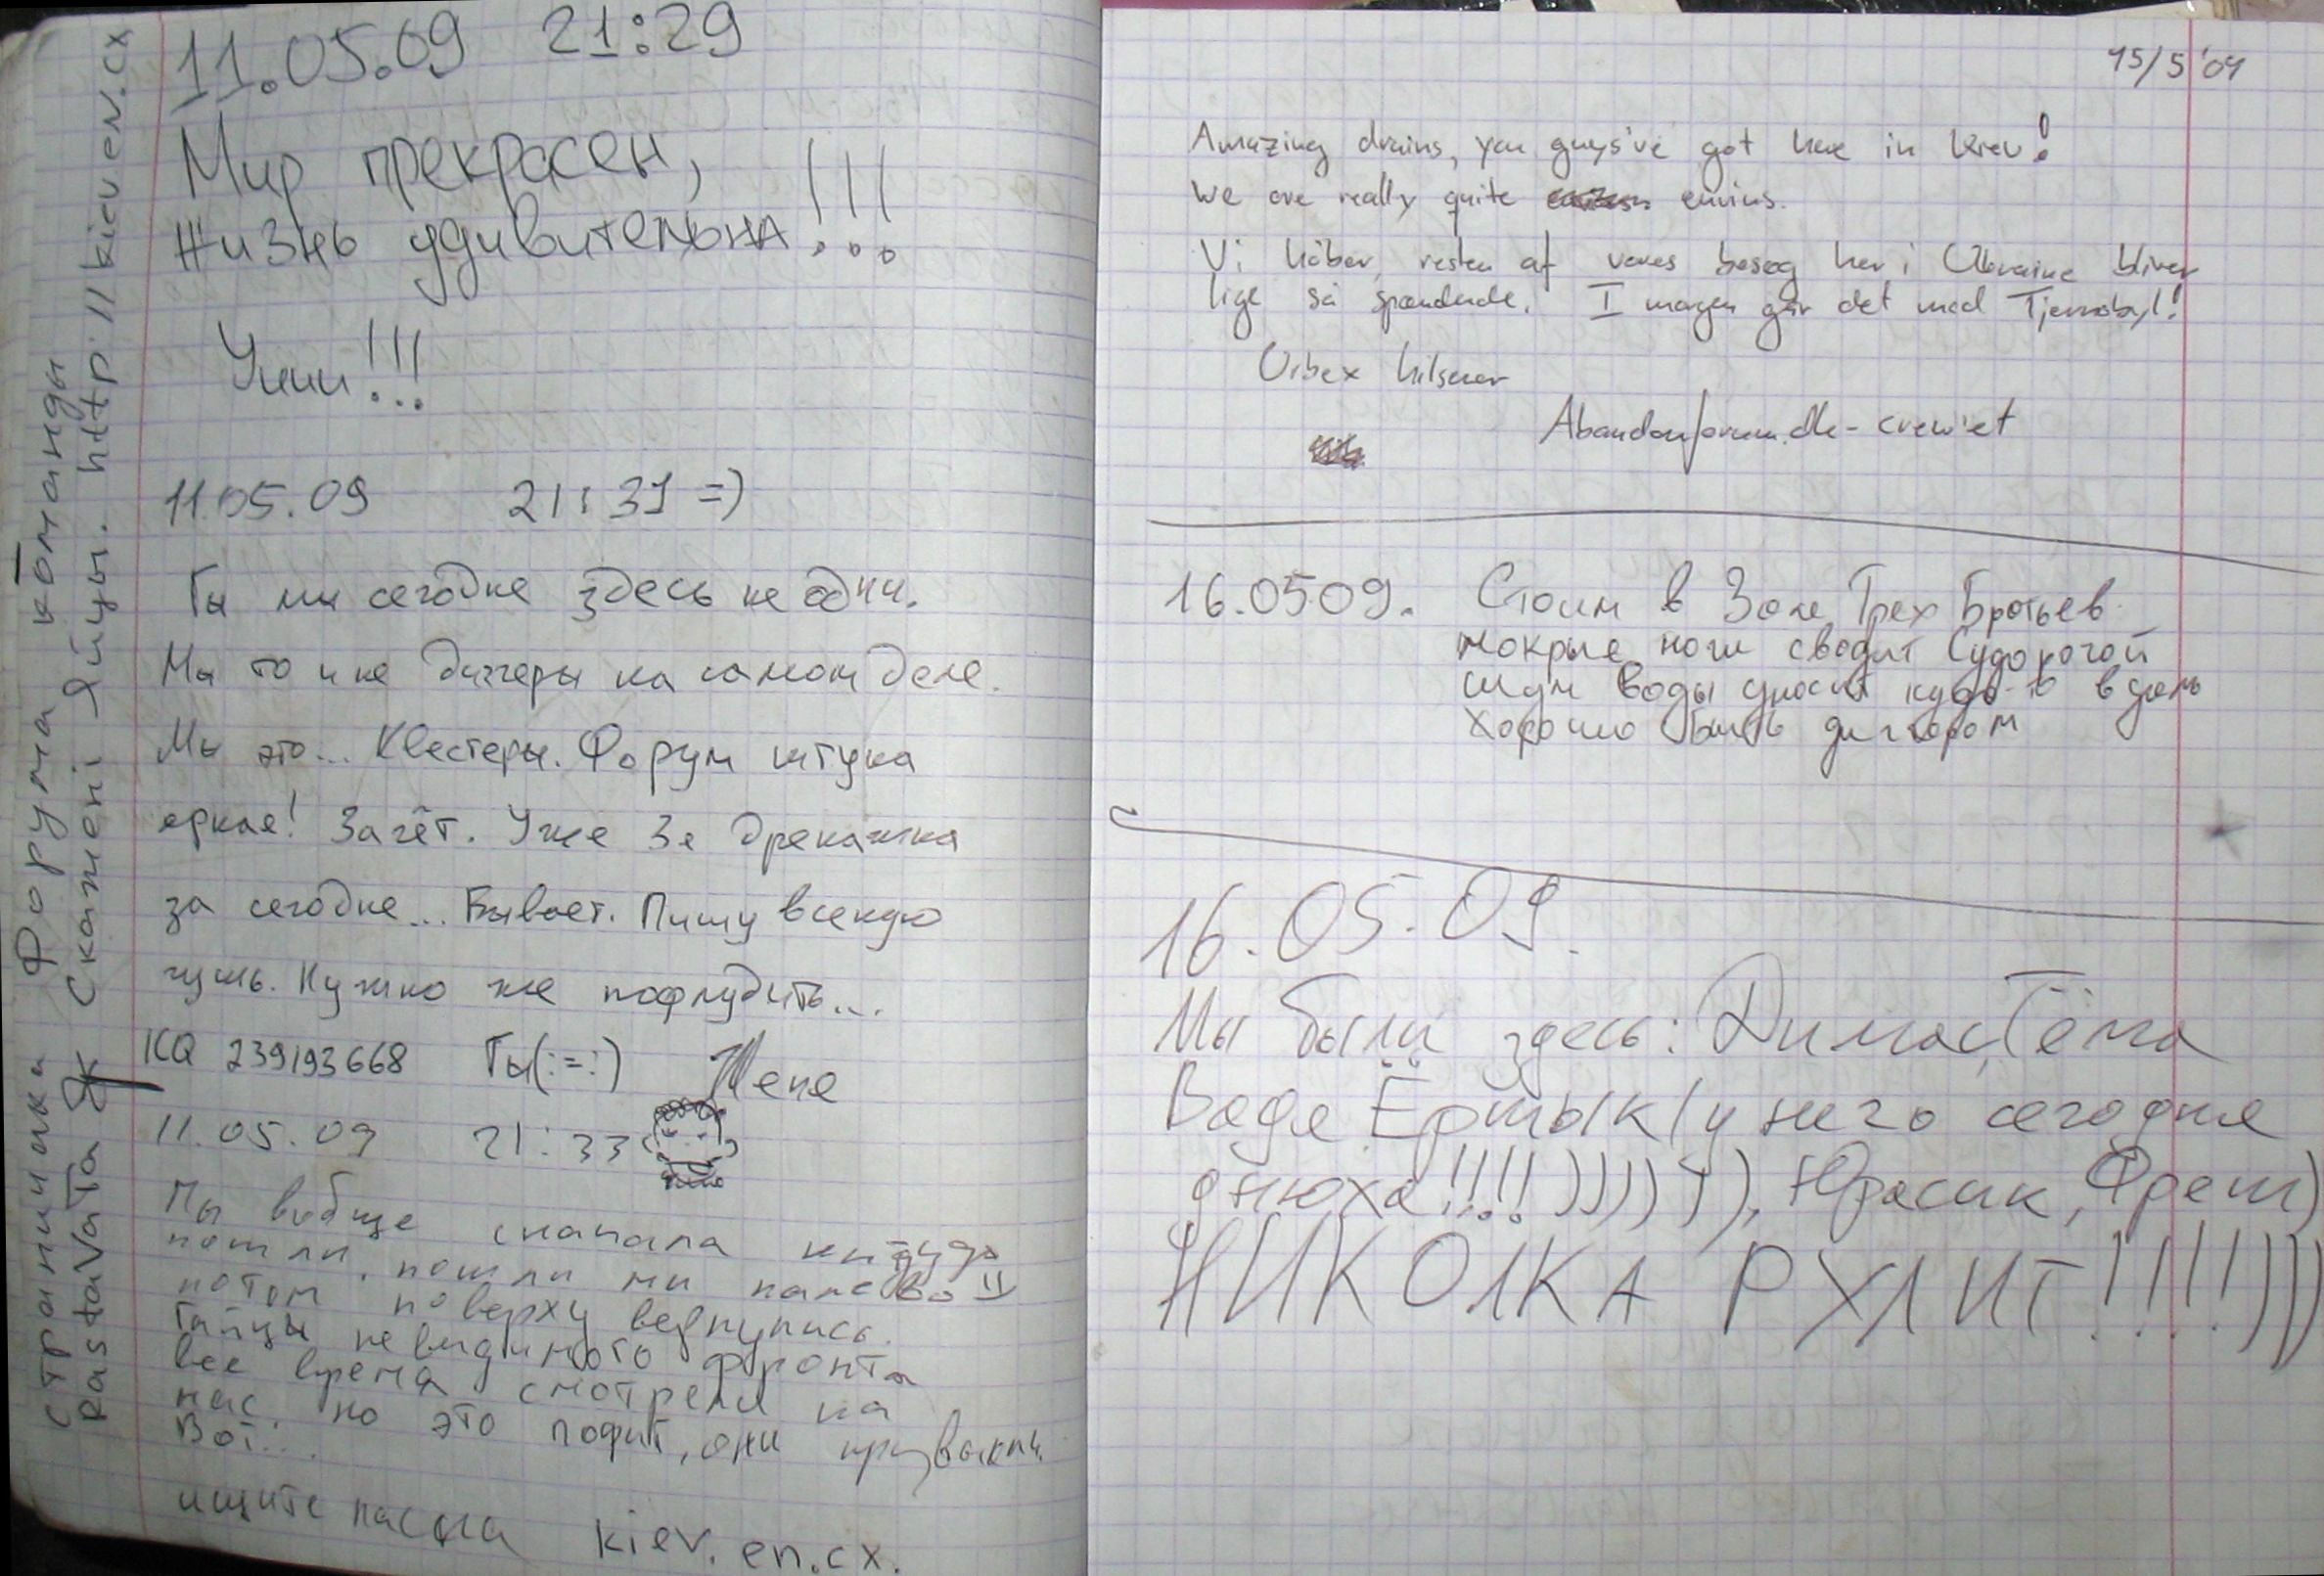 Страничка Форума команды
pastaVaта Як Скажені Яйцы. http://kiev.en.cx
11.05.09 21:29
Мир прекрасен,
Жизнь удивительна!!!
Уиии!!!
11.05.09 21:31 =)
Гы мы сегодня здесь не одни.
Мы то и не диггеры на самом деле.
Мы это... Квестеры. Форум штука
яркая! Зачёт. Уже 3я дренажка
за сегодня... Бывает. Пишу всякую
чушь. Нужно же пофлудить...
ICQ 239193668 Гы(:=:) Женя
11.05.09 21:33
Мы вобще сначала не туда
пошли, пошли мы налево
потом поверху вернулись.
невидимого фронта
все время смотрели на
нас, но это пофиг, они привыкли.
Вот...
ищите kiev.en.cx.
15/5 '09
Amazing drains, you guys've got here in Kiev!
We are really quite envius.
Vi håber resten af vores besøg her i Ukraine bliver
lige så spændende. I morgen går det mod Tjernobyl!
Urbex hilsener
Abandonforum.dk-crew'et
16.05.09. Стоим в Зале Трех Братьев
мокрые ноги сводит судорогой
шум воды уносит куда-то вдаль
хорошо быть диггером
16.05.09.
Мы были здесь: Димас, Тёма
Вадя Ёршык (у него сегодня
днюха!!!!))))), Юрасик, Фреш)
НИКОЛКА РУЛИТ!!!!)))